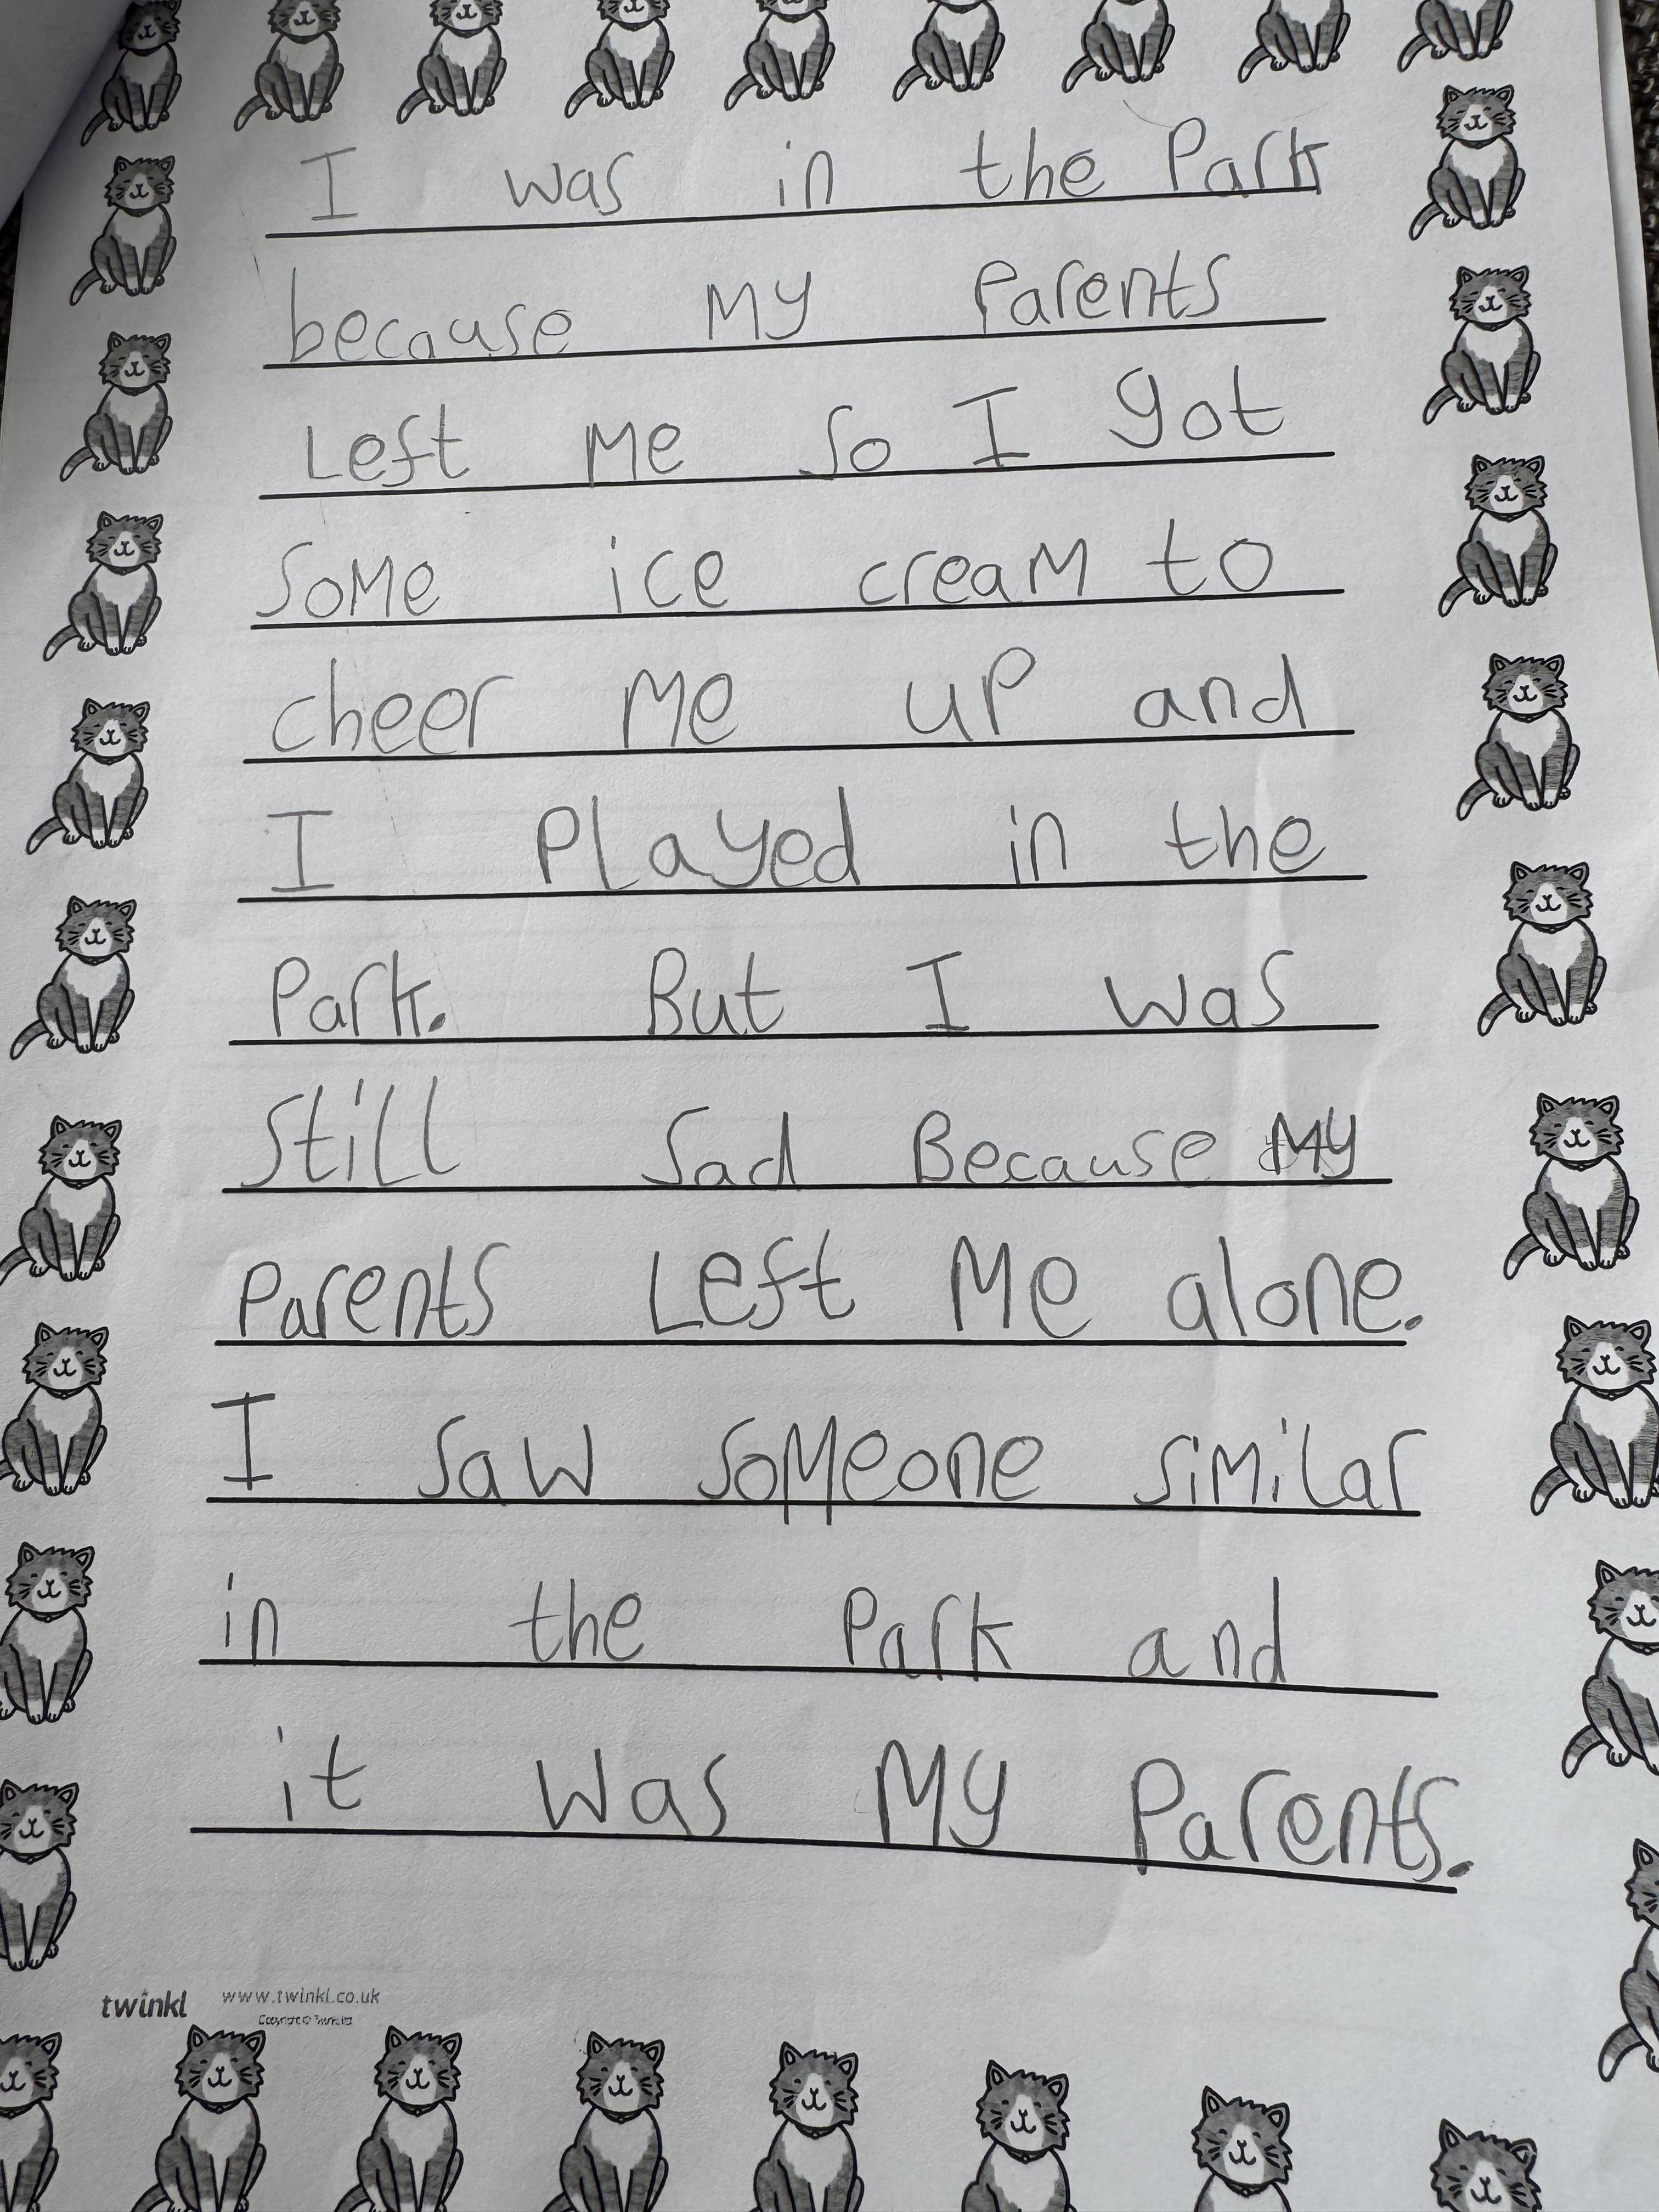 I was in the Park
because My Parents
Left Me so I got
some ice cream to
cheer Me up and
I Played in the
Park. But I was
still sad Because My
Parents Left Me alone.
I saw someone similar
in the Park and
it was My Parents.
twinkl www.twinkl.co.uk